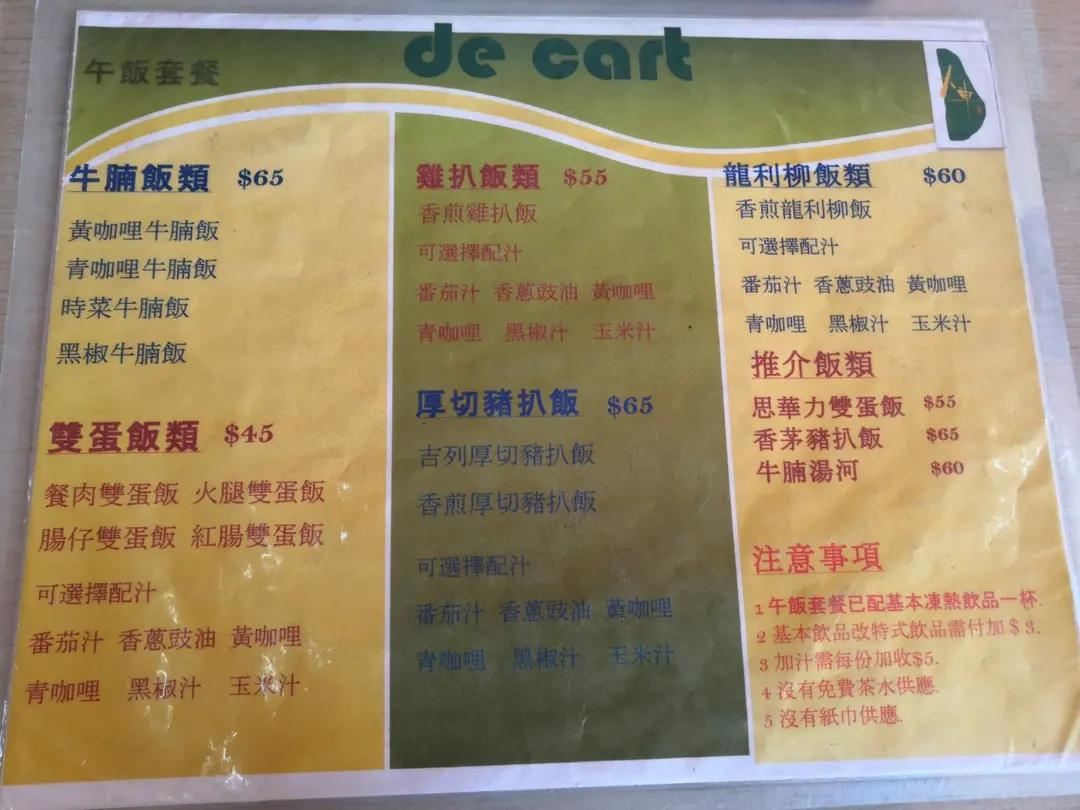 de cart
午飯套餐
牛腩飯類 $65
黃咖哩牛腩飯
青咖哩牛腩飯
時菜牛腩飯
黑椒牛腩飯
雙蛋飯類 $45
餐肉雙蛋飯 火腿雙蛋飯
腸仔雙蛋飯 紅腸雙蛋飯
可選擇配汁
番茄汁 香蔥豉油 黃咖哩
青咖哩 黑椒汁 玉米汁
雞扒飯類 $55
香煎雞扒飯
可選擇配汁
番茄汁 香蔥豉油 黃咖哩
青咖哩 黑椒汁 玉米汁
厚切豬扒飯 $65
吉列厚切豬扒飯
香煎厚切豬扒飯
可選擇配汁
番茄汁 香蔥豉油 黃咖哩
青咖哩 黑椒汁 玉米汁
龍利柳飯類 $60
香煎龍利柳飯
可選擇配汁
番茄汁 香蔥豉油 黃咖哩
青咖哩 黑椒汁 玉米汁
推介飯類
思華力雙蛋飯 $55
香茅豬扒飯 $65
牛腩湯河 $60
注意事項
1 午飯套餐已配基本凍熱飲品一杯.
2 基本飲品改特式飲品需付加 $ 3.
3 加汁需每份加收$5.
4 沒有免費茶水供應.
5 沒有紙巾供應.